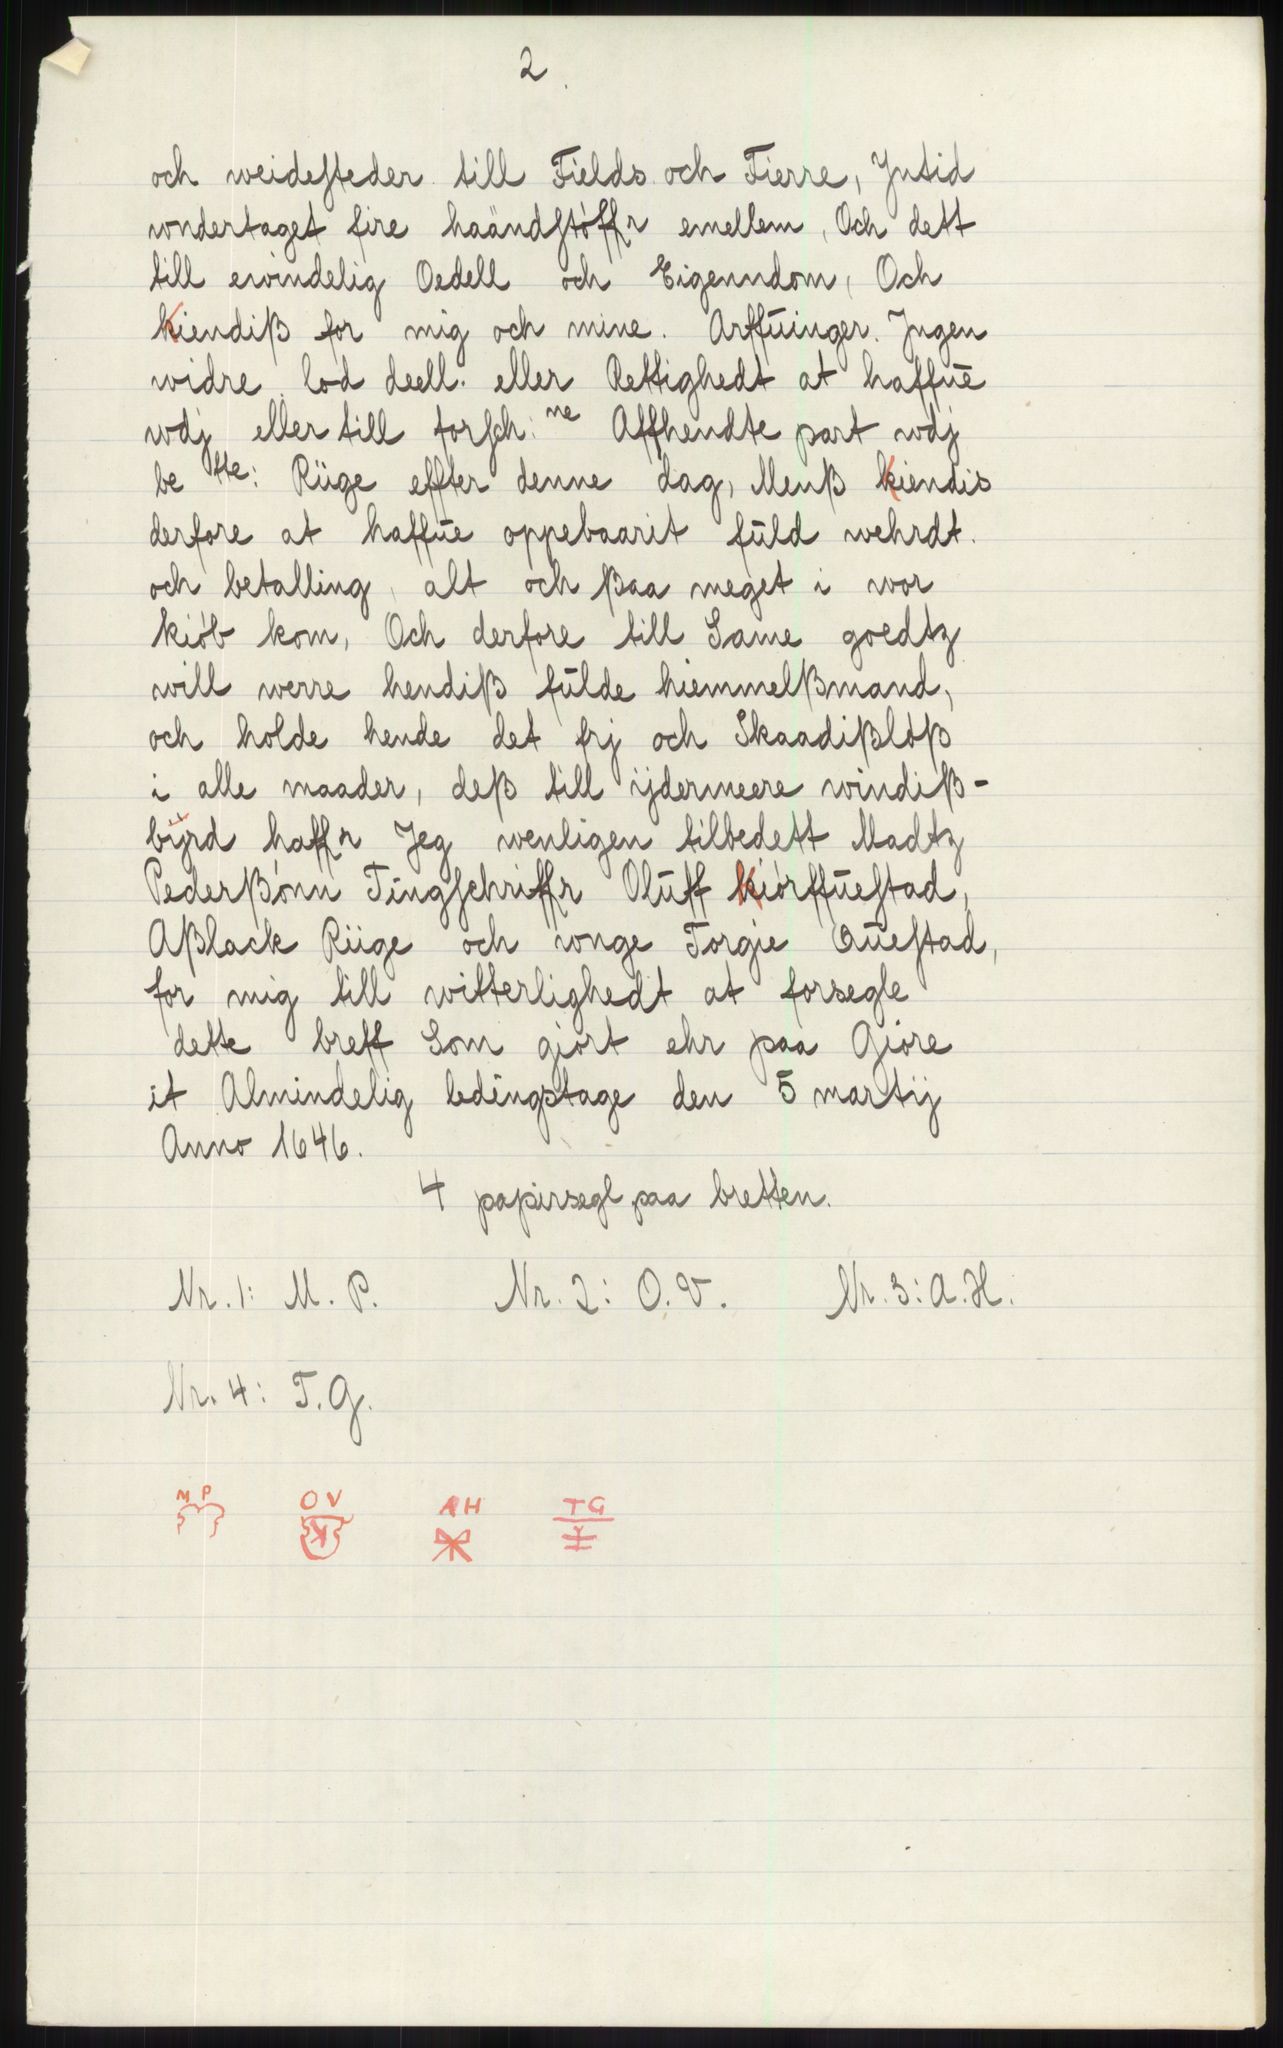 2.
och weidesteder till Fields och Fierre, Jntid
wndertaget fire haandstöffr emellem, Och dett
till ewindelig Oedell och Eigenndom, Och
Kiendiß for mig och mine. Arffūinger. Jngen
widre lod deell. eller Rettighedt at haffūe
wdj eller till forsch: ne Affhendte part wdj
be tte: Rüge effter denne dag, Menß Kiendis
derfore at haffūe oppebaarit fūld wehrdt.
och betalling, alt och ßaa meget i wor
kiöb kom, Och derfore till Same goedtz
will werre hendiß fūlde hiemmelßmand,
och holde hende det frj och Skaadißlöß
i alle maader, deß till ijdermeere windiß-
bÿrd haffr Jeg wenligen tilbedett Madtz
Pederßönn Tingschriffr Olūff Kiörffūestad,
Aßlack Rüge och wnge Torgie Qūestad,
for mig till witterlighedt at forsegle
dette breff Som giört ehr paa Giöre
it Almindelig ledingstage den 5 martij
Anno 1646.
4 papirsegl paa bretten.
Nr. 1: M. P. Nr. 2: O. V. Nr. 3: A. H.
Nr. 4: T. G.
M P O V A H T G